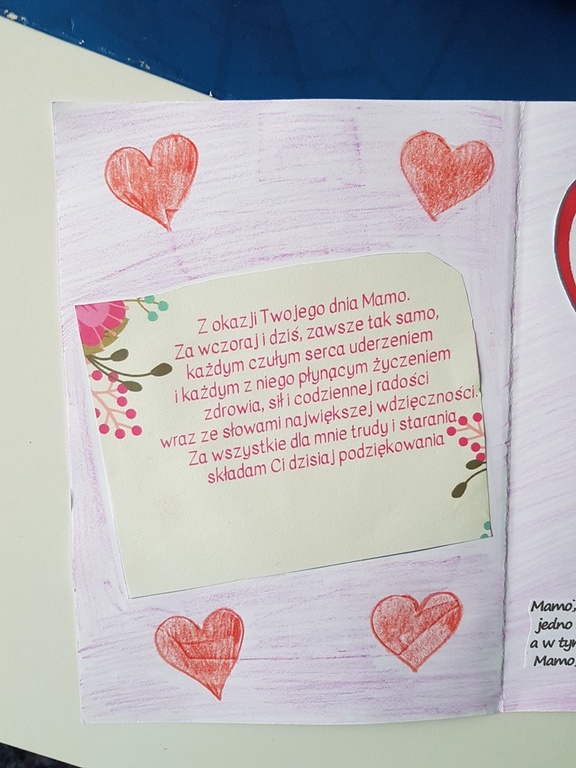 Z okazji Twojego dnia Mamo.
Za wczoraj i dziś, zawsze tak samo,
każdym czułym serca uderzeniem
i każdym z niego płynącym życzeniem
zdrowia, sił i codziennej radości
wraz ze słowami największej wdzięczności.
Za wszystkie dla mnie trudy i starania
składam Ci dzisiaj podziękowania
Mamo,
jedno
a w tym
Mamo,